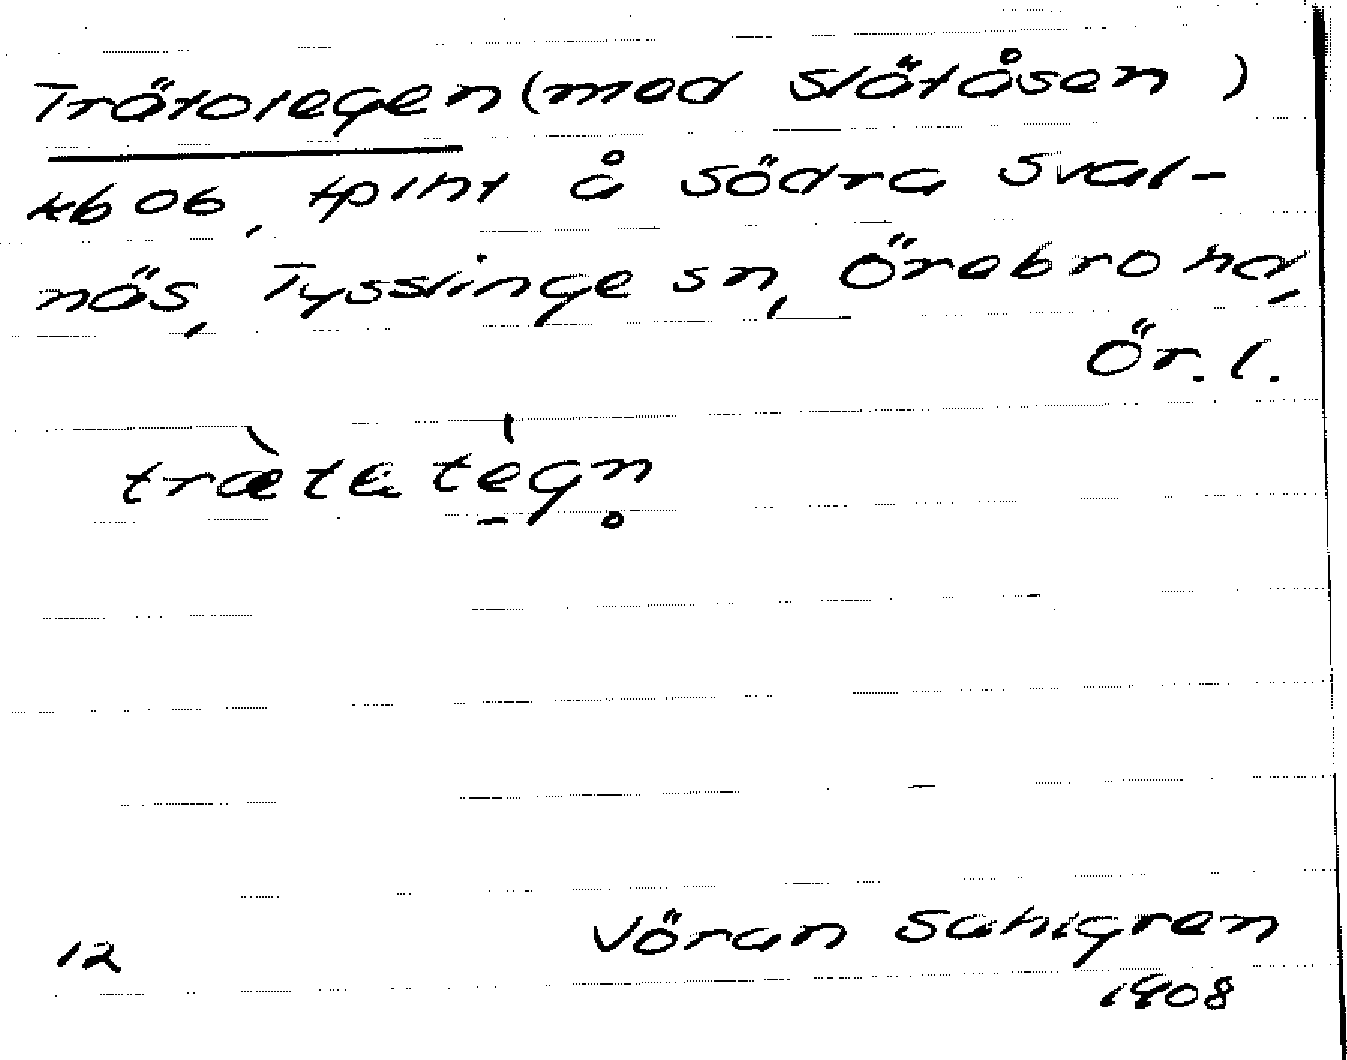 Trätotegen (med slätåsen )
kb 06, tplht å södra Sval-
näs, Tysslinge sn, Örebro hd,
Ör. l.
træ̀te tegn̥
12
Jöran Sahlgren
1908